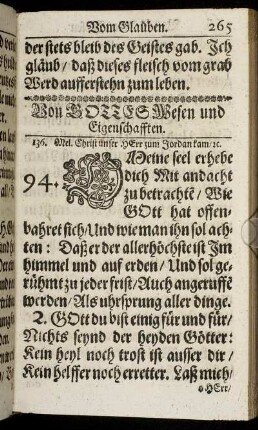 Vom Glauben. 265
der stets bleib des Geistes gab. Ich
gläub / daß dieses fleisch vom grab
Werd aufferstehn zum leben.
Von GOTTES Wesen und
Eigenschafften.
136. Mel. Christ unser HErr zum Jordan kam / ꝛc.
94. MEine seel erhebe
dich Mit andacht
zu betrachtē / Wie
GOtt hat offen-
bahret sich / Und wie man ihn sol ach-
ten: Daß er der allerhöchste ist Im
himmel und auf erden / Und sol ge-
rühmt zu jeder frist / Auch angeruffē
werden / Als uhrsprung aller dinge.
2. GOtt du bist einig für und für /
Nichts seynd der heyden Götter:
Kein heyl noch trost ist ausser dir /
Kein helffer noch erretter. Laß mich /
HErr /